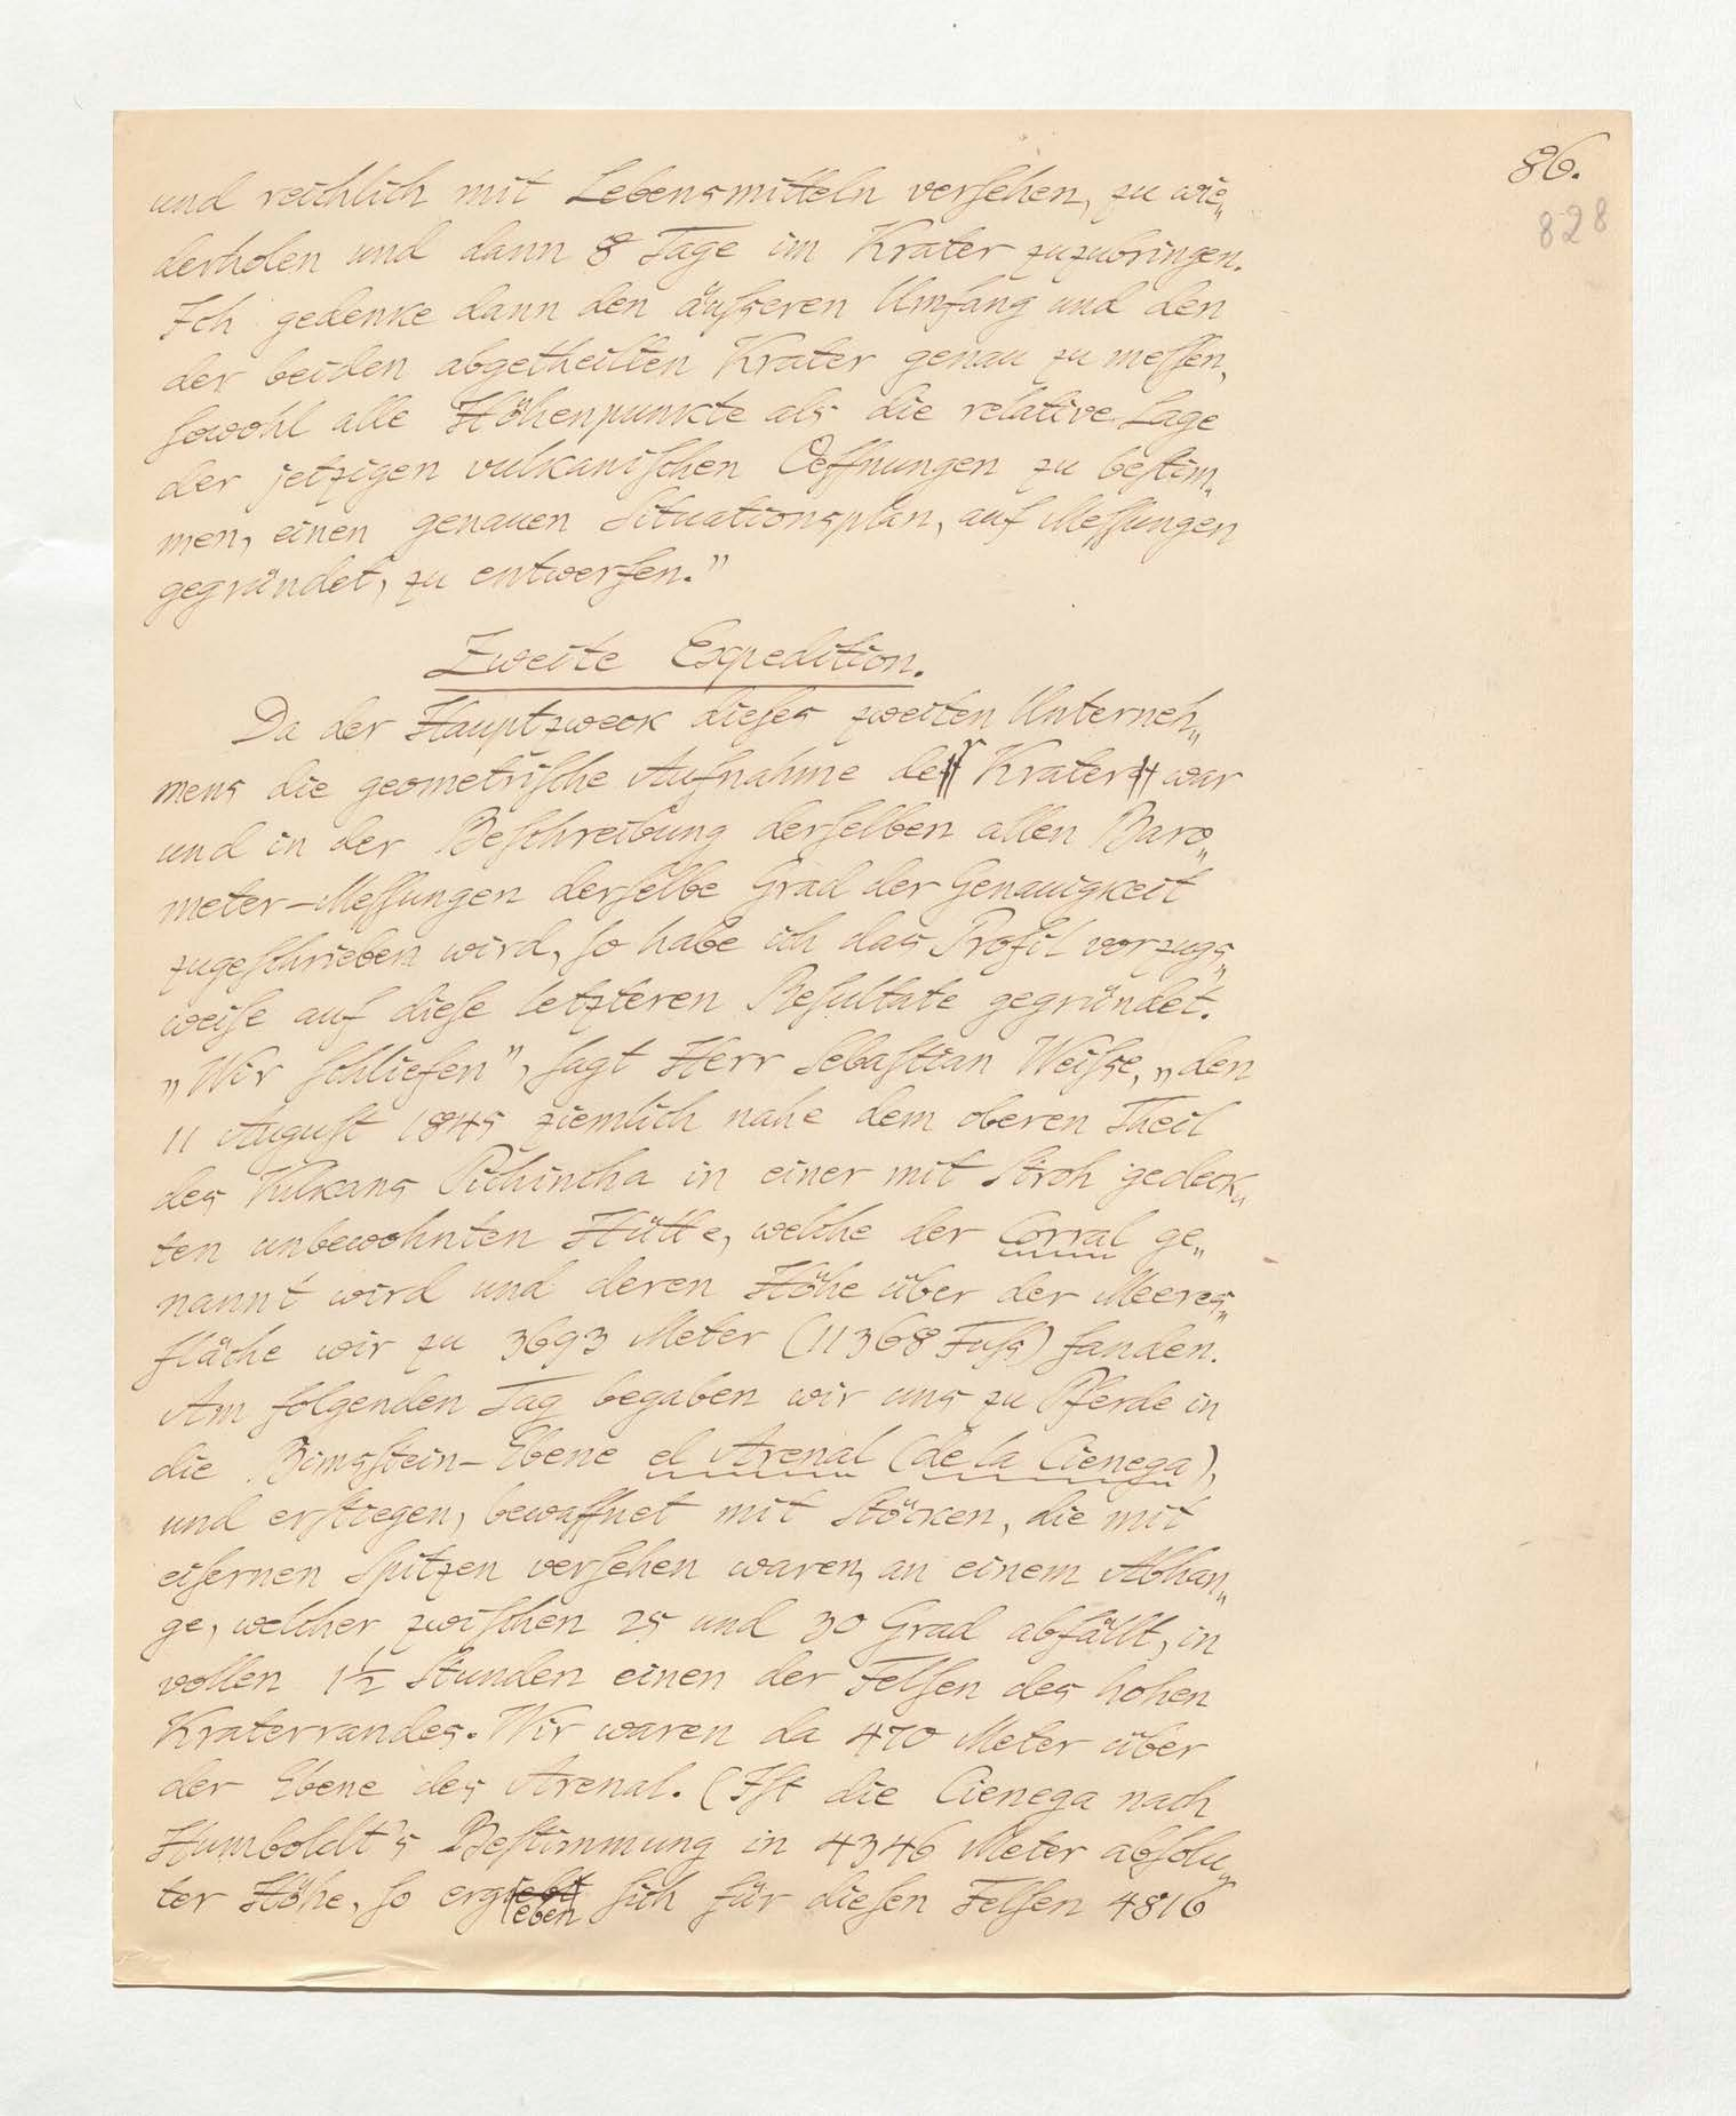 86.
828
und reichlich mit Lebensmitteln verſehen, zu wie„
derholen und dann 8 Tage im Krater zuzubringen.
Ich gedenke dann den äuſseren Umfang und den
der beiden abgetheilten Krater genau zu meſſen,
ſowohl alle Höhenpunkte als die relative Lage
der jetzigen vulkaniſchen Oeffnungen zu beſtim„
men, einen genauen Situationsplan, auf Meſſungen
gegründet, zu entwerfen."
Zweite Expedition.
Da der Hauptzweck dieſes zweiten Unterneh„
mens die geometriſche Aufnahme der Krater war
und in der Beſchreibung derſelben allen Baro„
meter-Meſſungen derſelbe Grad der Genauigkeit
zugeſchrieben wird, ſo habe ich das Profil vorzugs„
weiſe auf dieſe letzteren Reſultate gegründet.
„Wir ſchliefen", ſagt Herr Sebaſtian Weiſse, „den
11 Auguſt 1845 ziemlich nahe dem oberen Theil
des Vulkans Pichincha in einer mit Stroh gedeck„
ten unbewohnten Hütte, welche der Corral ge„
nannt wird und deren Höhe über der Meeres„
fläche wir zu 3693 Meter (11368 Fuſs) fanden.
Am folgenden Tag begaben wir uns zu Pferde in
die Bimsſtein-Ebene el Arenal (de la Cienega),
und erſtiegen, bewaffnet mit Stöcken, die mit
eiſernen Spitzen verſehen waren, an einem Abhan„
ge, welcher zwiſchen 25 und 30 Grad abfällt, in
vollen 1½ Stunden einen der Felſen des hohen
Kraterrandes. Wir waren da 470 Meter über
der Ebene des Arenal. (Iſt die Cienega nach
Humboldt's Beſtimmung in 4346 Meter abſolu„
ter Höhe, ſo ergeben ſich für dieſen Felſen 4816